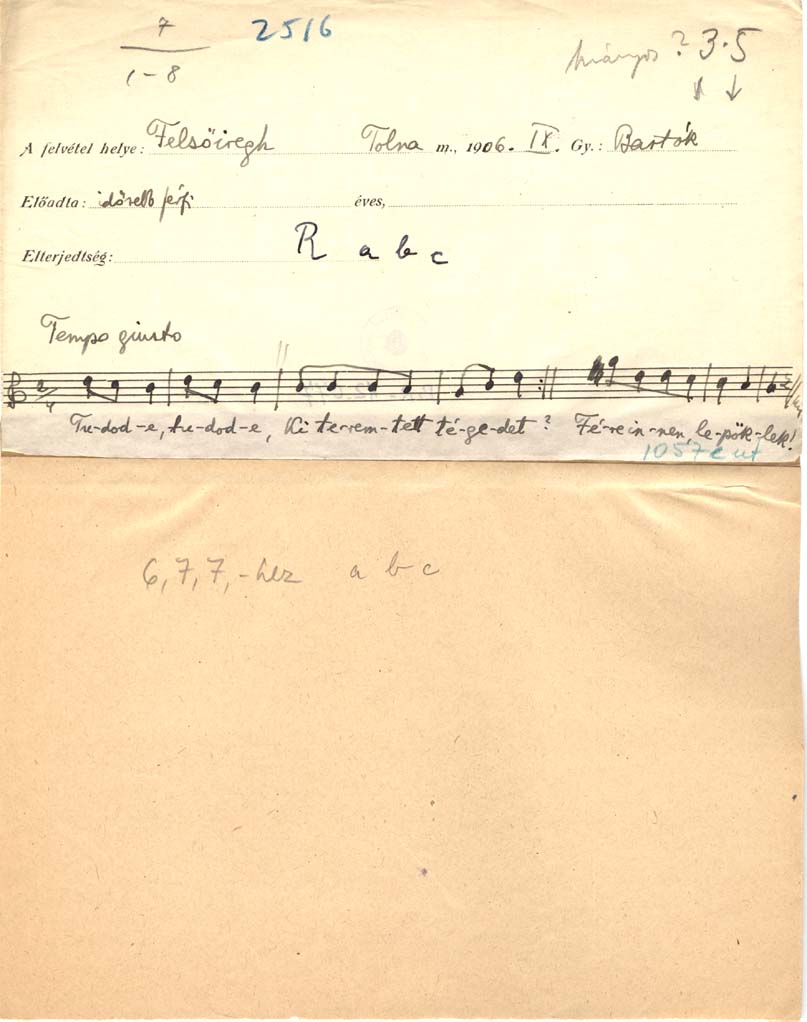 7
1-8
2516
hiányos? 3·5
A felvétel helye: Felsőiregh Tolna m., 1906. IX. Gy.: Bartók
Előadta: idősebb férfi éves,
Elterjedtség: R a b c
Tempo giusto
2/4
Tu-dod-e, tu-dod-e, Ki te-rem-tett té-ge-det? Fé-re in-nen, le-pök-lek!
1057 c
6, 7, 7,-hez a b c